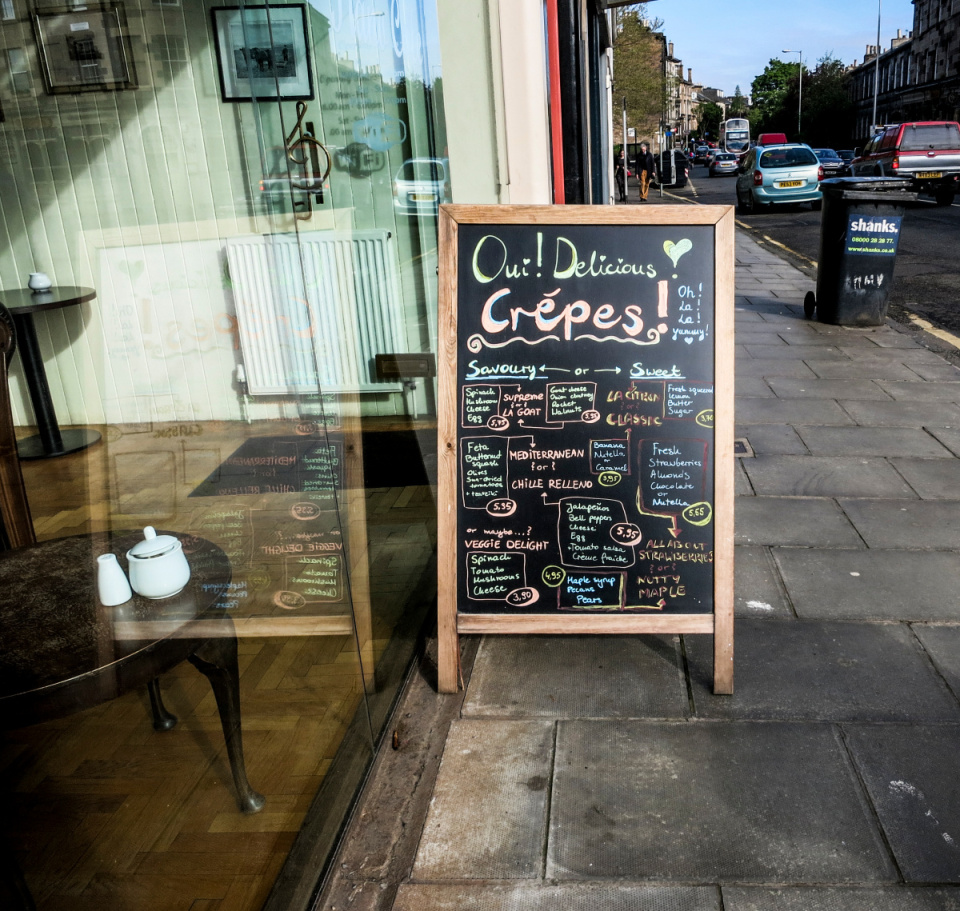 Oui! Delicious
Crêpes!
Oh!
La!
La!
yummy!
Savoury ← or → Sweet
Spinach
Mushroom
Cheese
Egg
5,75
SUPREME
{or}
LA GOAT
Goat cheese
Onion chutney
Rocket
Walnuts
LA CITRON
{or}
CLASSIC
Fresh squeezed
lemon
Butter
Sugar
Feta
Butternut
squash
Olives
Sun-dried
tomatoes
5,95
MEDITERRANEAN
{or}
CHILLE RELLENO
Banana
Nutella
or
Caramel
3,95
Fresh
Strawberries
Almonds
Chocolate
or
Nutella
5,65
Jalapeños
Bell peppers
Cheese
Egg
+Tomato salsa
Crème fraîche
5,95
or maybe...?
VEGGIE DELIGHT
Spinach
Tomato
Mushrooms
Cheese
3,90
ALL ABOUT
STRAWBERRIES
{or}
NUTTY
MAPLE
4,95
Maple syrup
Pecans
Pears
shanks.
08000 28 28 77.
www.shanks.co.uk